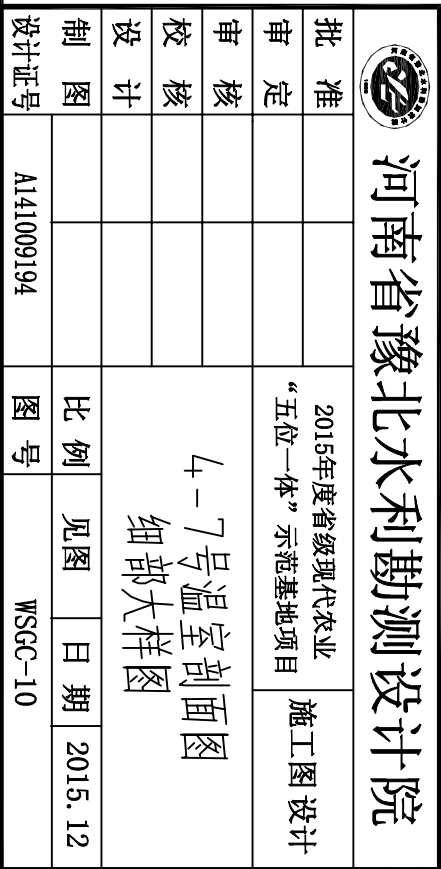 河南省豫北水利勘测设计院
批准
2015年度省级现代农业
“五位一体”示范基地项目
施工图 设计
审定
审核
4-7号温室剖面图
细部大样图
校核
设计
制图
比例
见图
日期
2015.12
设计证号
A141009194
图号
WSGC-10